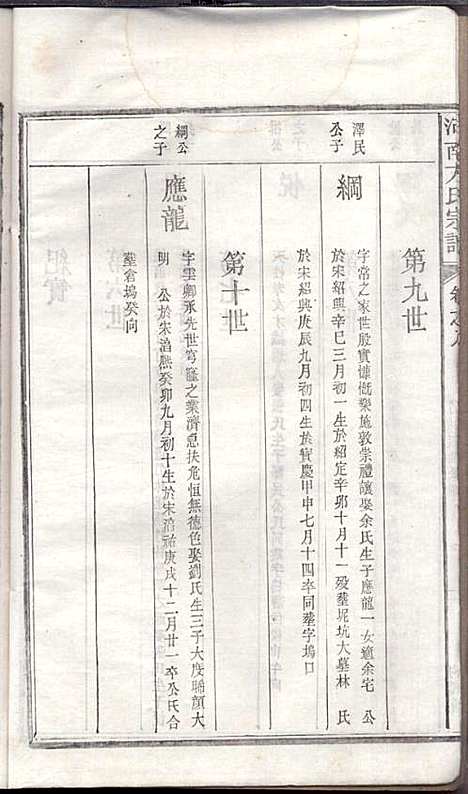 方氏宗譜
第九世
澤民
公子
綱
字常之家世殷實慷慨樂施敦崇禮讓娶余氏生子應龍一女適余宅 公
於宋紹興辛巳三月初一生於紹定辛卯十月十一歿葬坭坑大墓林 氏
於宋紹興庚辰九月初四生於寶慶甲申七月十四卒同葬字塢口
第十世
綱公
之子
應龍
字雲卿承先世穹窿之業濟急扶危恒無德色娶劉氏生三子大度 顏大
明 公於宋淳熙癸卯九月初十生於宋淳祐庚戌十二月廿一卒公氏合
葬倉塢癸向